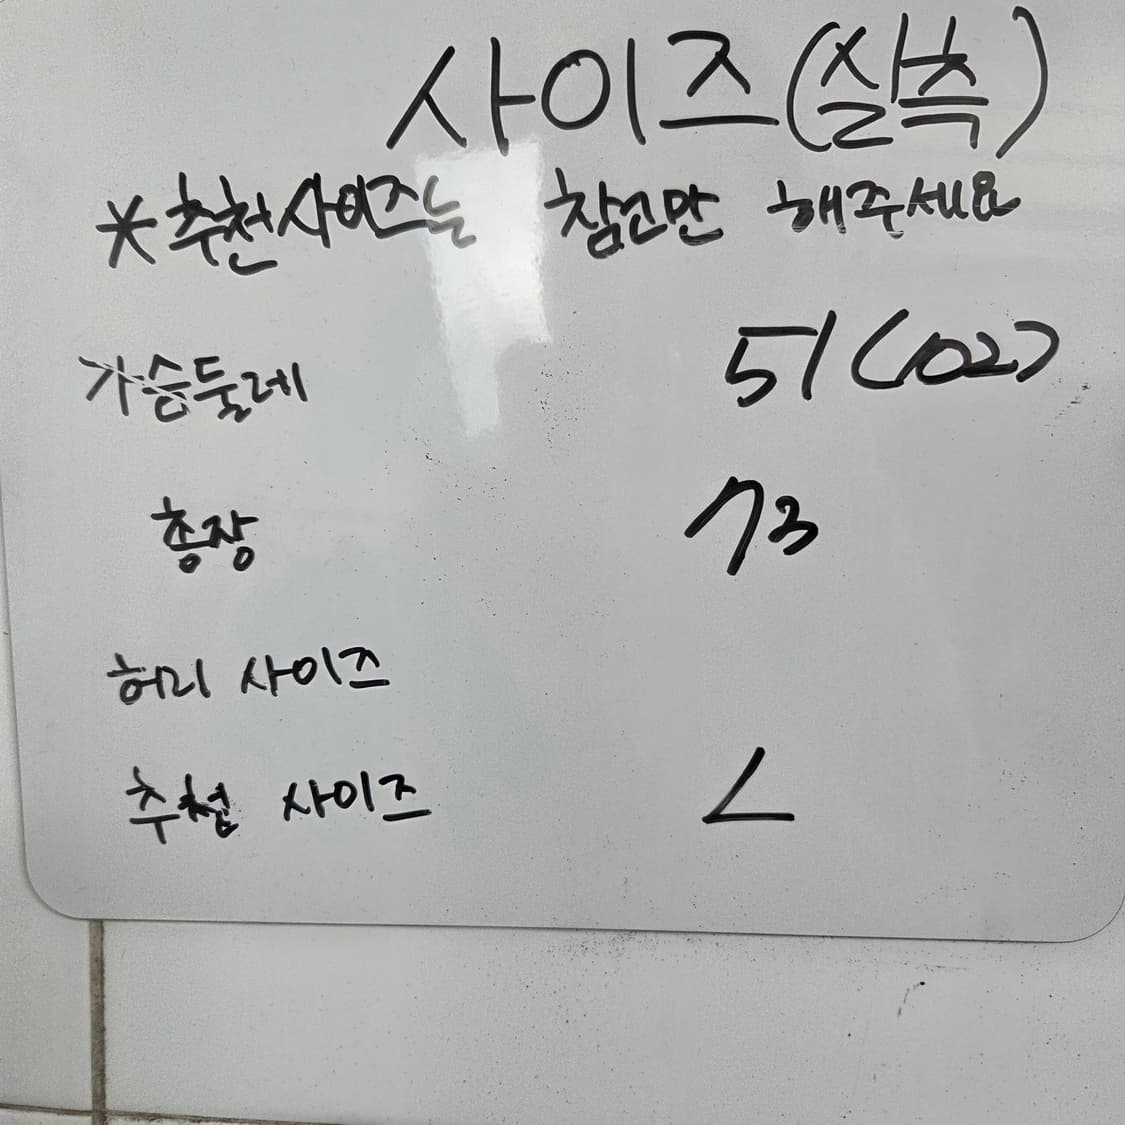 사이즈(실측)
*추천사이즈는 참고만 해주세요
가슴둘레 51(102)
총장 73
허리 사이즈
추천 사이즈 L